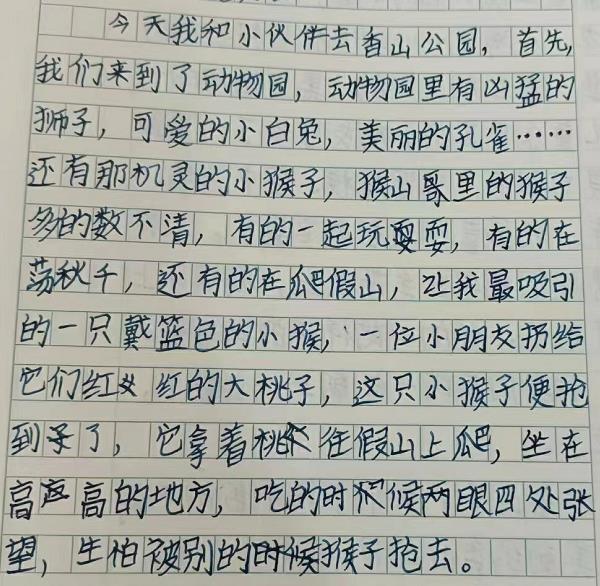 今天我和小伙伴去香山公园，首先，
我们来到了动物园，动物园里有凶猛的
狮子，可爱的小白兔，美丽的孔雀……
还有那机灵的小猴子，猴山里的猴子
多的数不清，有的一起玩耍，有的在
荡秋千，还有的在爬假山，让我最吸引
的一只戴篮色的小猴，一位小朋友扔给
它们红红的大桃子，这只小猴子便抢
到了，它拿着桃往假山上爬，坐在
高高的地方，吃的时候两眼四处张
望，生怕被别的猴子抢去。